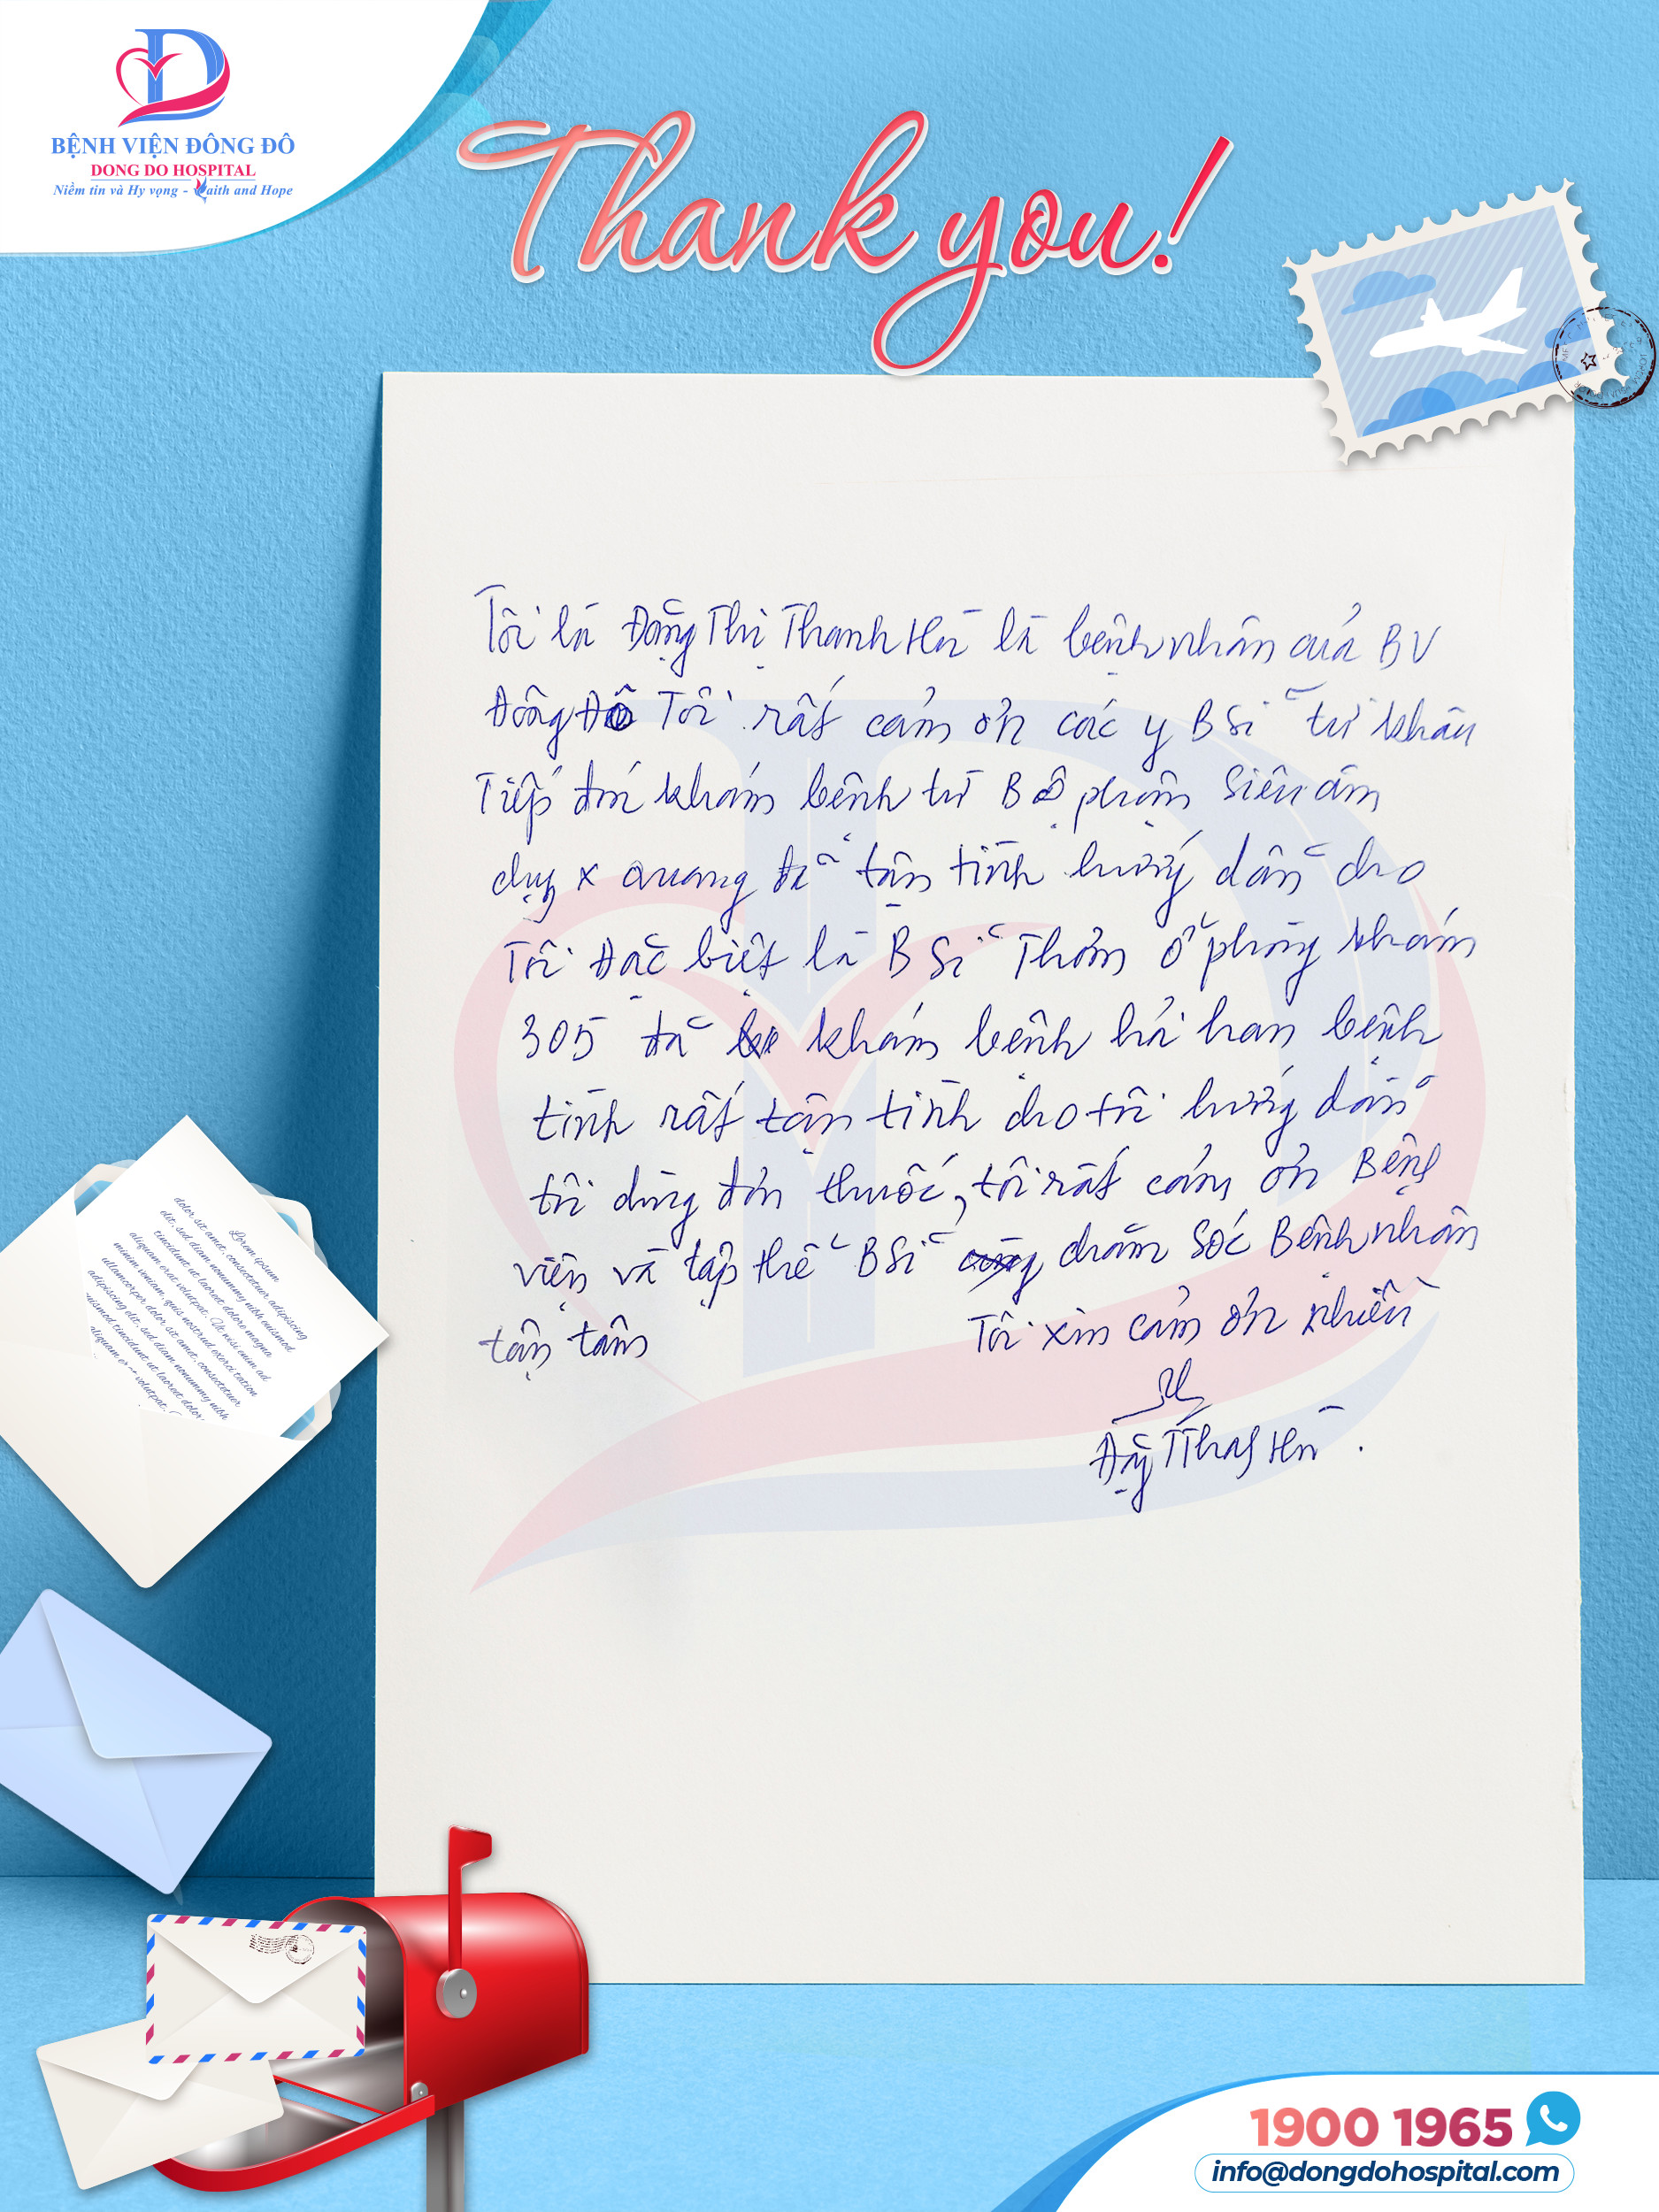 BỆNH VIỆN ĐÔNG ĐÔ
DONG DO HOSPITAL
Niềm tin và Hy vọng - Faith and Hope
Thank you!
Tôi là Đặng Thị Thanh Hà là bệnh nhân của BV
Đông Đô Tôi rất cảm ơn các y B Sĩ từ khâu
Tiếp đón khám bệnh từ Bộ phận Siêu âm
chụp x quang đã tận tình hướng dẫn cho
Tôi Đặc biệt là B Sĩ Thơm ở phòng khám
305 đã khám bệnh hỏi han bệnh
tình rất tận tình cho tôi hướng dẫn
tôi dùng đơn thuốc, tôi rất cảm ơn Bệnh
viện và tập thể B Sĩ chăm sóc Bệnh nhân
tận tâm
Tôi xin cảm ơn nhiều
Đặng T Thanh Hà.
Lorem ipsum
dolor sit amet, consectetuer adipiscing
elit, sed diam nonummy nibh euismod
tincidunt ut laoreet dolore magna
aliquam erat volutpat. Ut wisi enim ad
minim veniam, quis nostrud exerci tation
ullamcorper dolor sit amet, consectetuer
adipiscing elit, sed diam nonummy nibh
euismod tincidunt ut laoreet dolore
volutpat.
1900 1965
info@dongdohospital.com